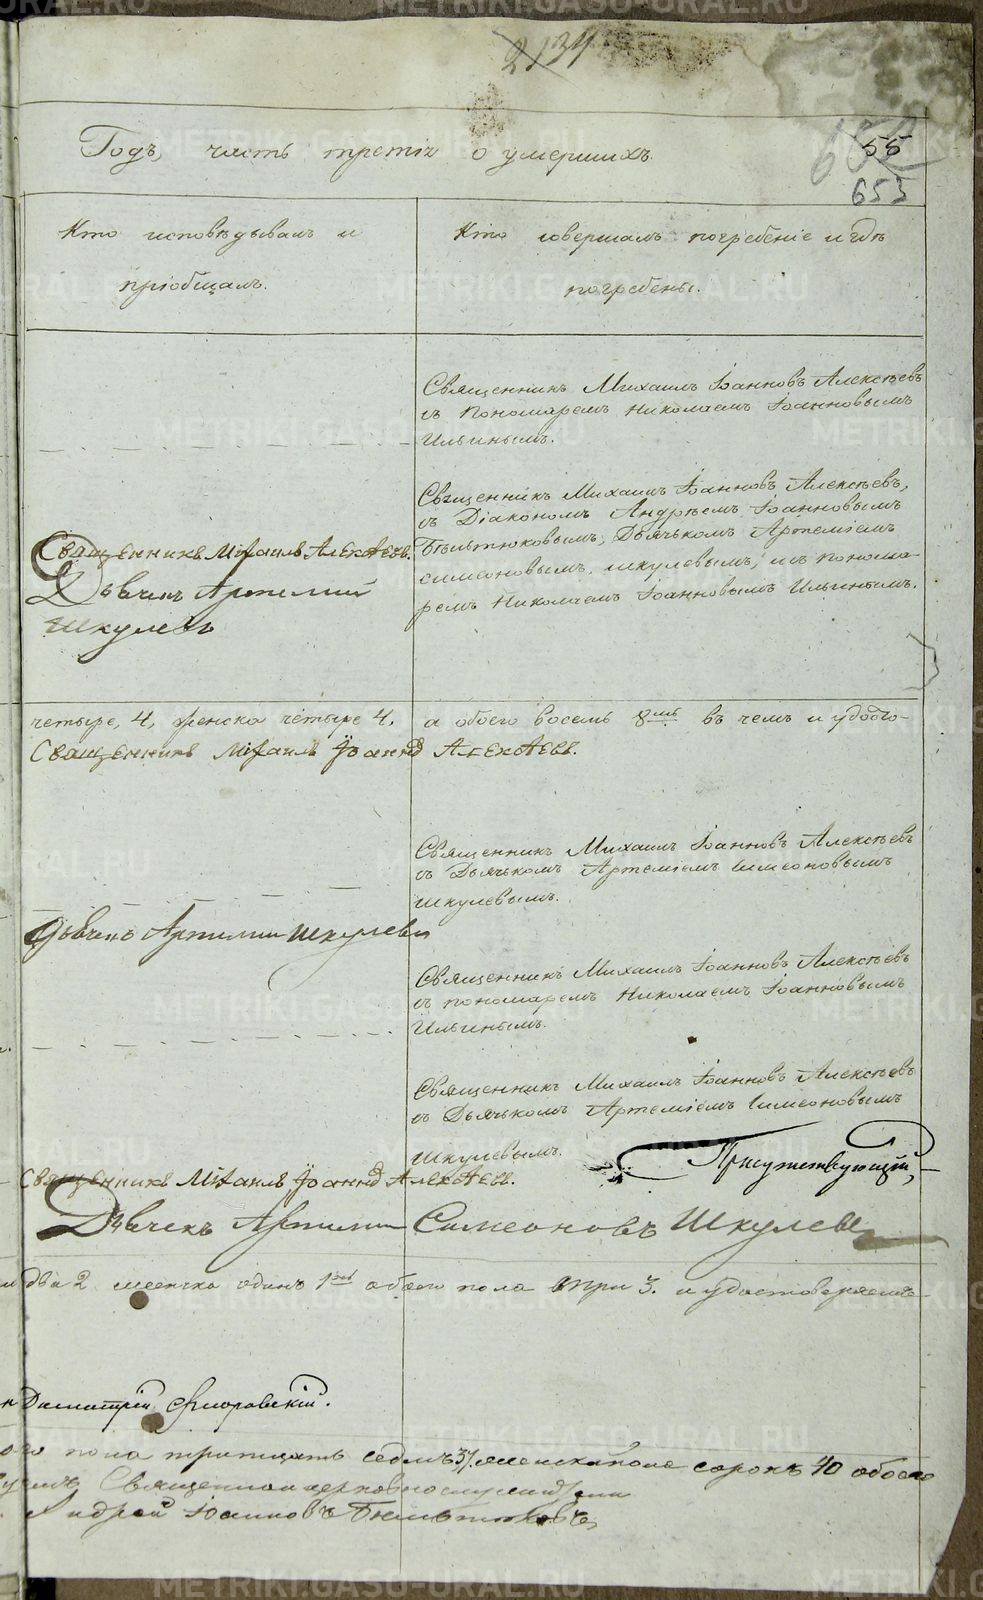 2134
55
653
Годъ, часть третія о умершихъ.
Кто исповѣдывалъ и
пріобщалъ.
Кто совершалъ погребеніе и гдѣ
погребены.
Священникъ Михаилъ Іоанновъ Алексѣевъ
съ Пономаремъ Николаемъ Іоанновымъ
Ильинымъ.
Священникъ Михаилъ Іоанновъ Алексѣевъ,
съ Діакономъ Андрѣемъ Іоанновымъ
Бѣльтюковымъ, Дьячькомъ Артеміемъ
Симеоновымъ, Шкулевымъ, и съ понома-
ремъ Николаемъ Іоанновымъ Ильинымъ.
Священникъ Михаилъ Алексѣевъ.
Дьячекъ Артемий
Шкулевъ
четыре, 4, женска четыре 4. а обоего восемь 8мь въ чемъ и удосто-
Священникъ Михаилъ Іоаннов Алексѣевъ.
Священникъ Михаилъ Іоанновъ Алексѣевъ
съ Дьячькомъ Артеміемъ Симеоновымъ
Шкулевымъ.
Дьячекъ Артемии Шкулевъ
Священникъ Михаилъ Іоанновъ Алексѣевъ
съ пономаремъ Николаемъ Іоанновымъ
Ильинымъ.
Священникъ Михаилъ Іоанновъ Алексѣевъ
съ Дьячькомъ Артеміемъ Симеоновымъ
Шкулевымъ.
Присутствующій,
Священникъ Михаилъ Іоаннов Алексѣевъ.
Дьячекъ Артемии Симеоновъ Шкулевъ
два 2 женска одинъ 1 обоего пола три 3. и удостоверяемъ
Димитрій
пола тритцать седмь 37. женска пола сорокъ 40 обоего
Священно и церковнослужители
Андрей Іоанновъ Бельтюковъ
METRIKI.GASO-URAL.RU